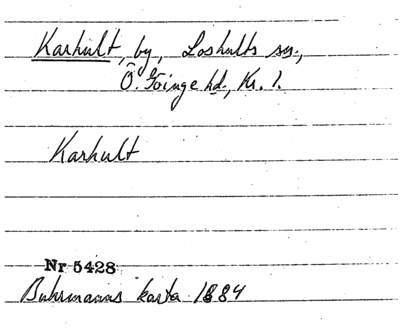 Karhult, by, Loshults sn.,
Ö. Göinge hd., Kr. l.
Karhult
Nr 5428
Buhrmans karta 1884